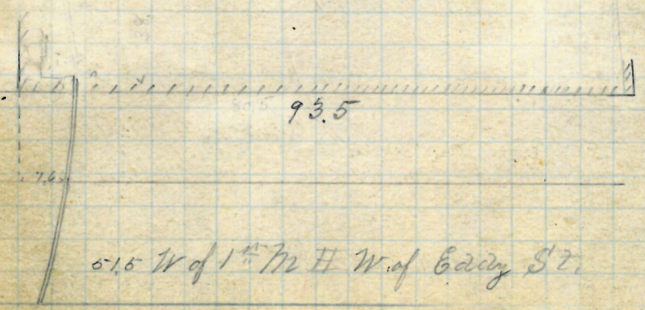 93.5
7.6
51.5 W of 1st M H W. of Eddy St.